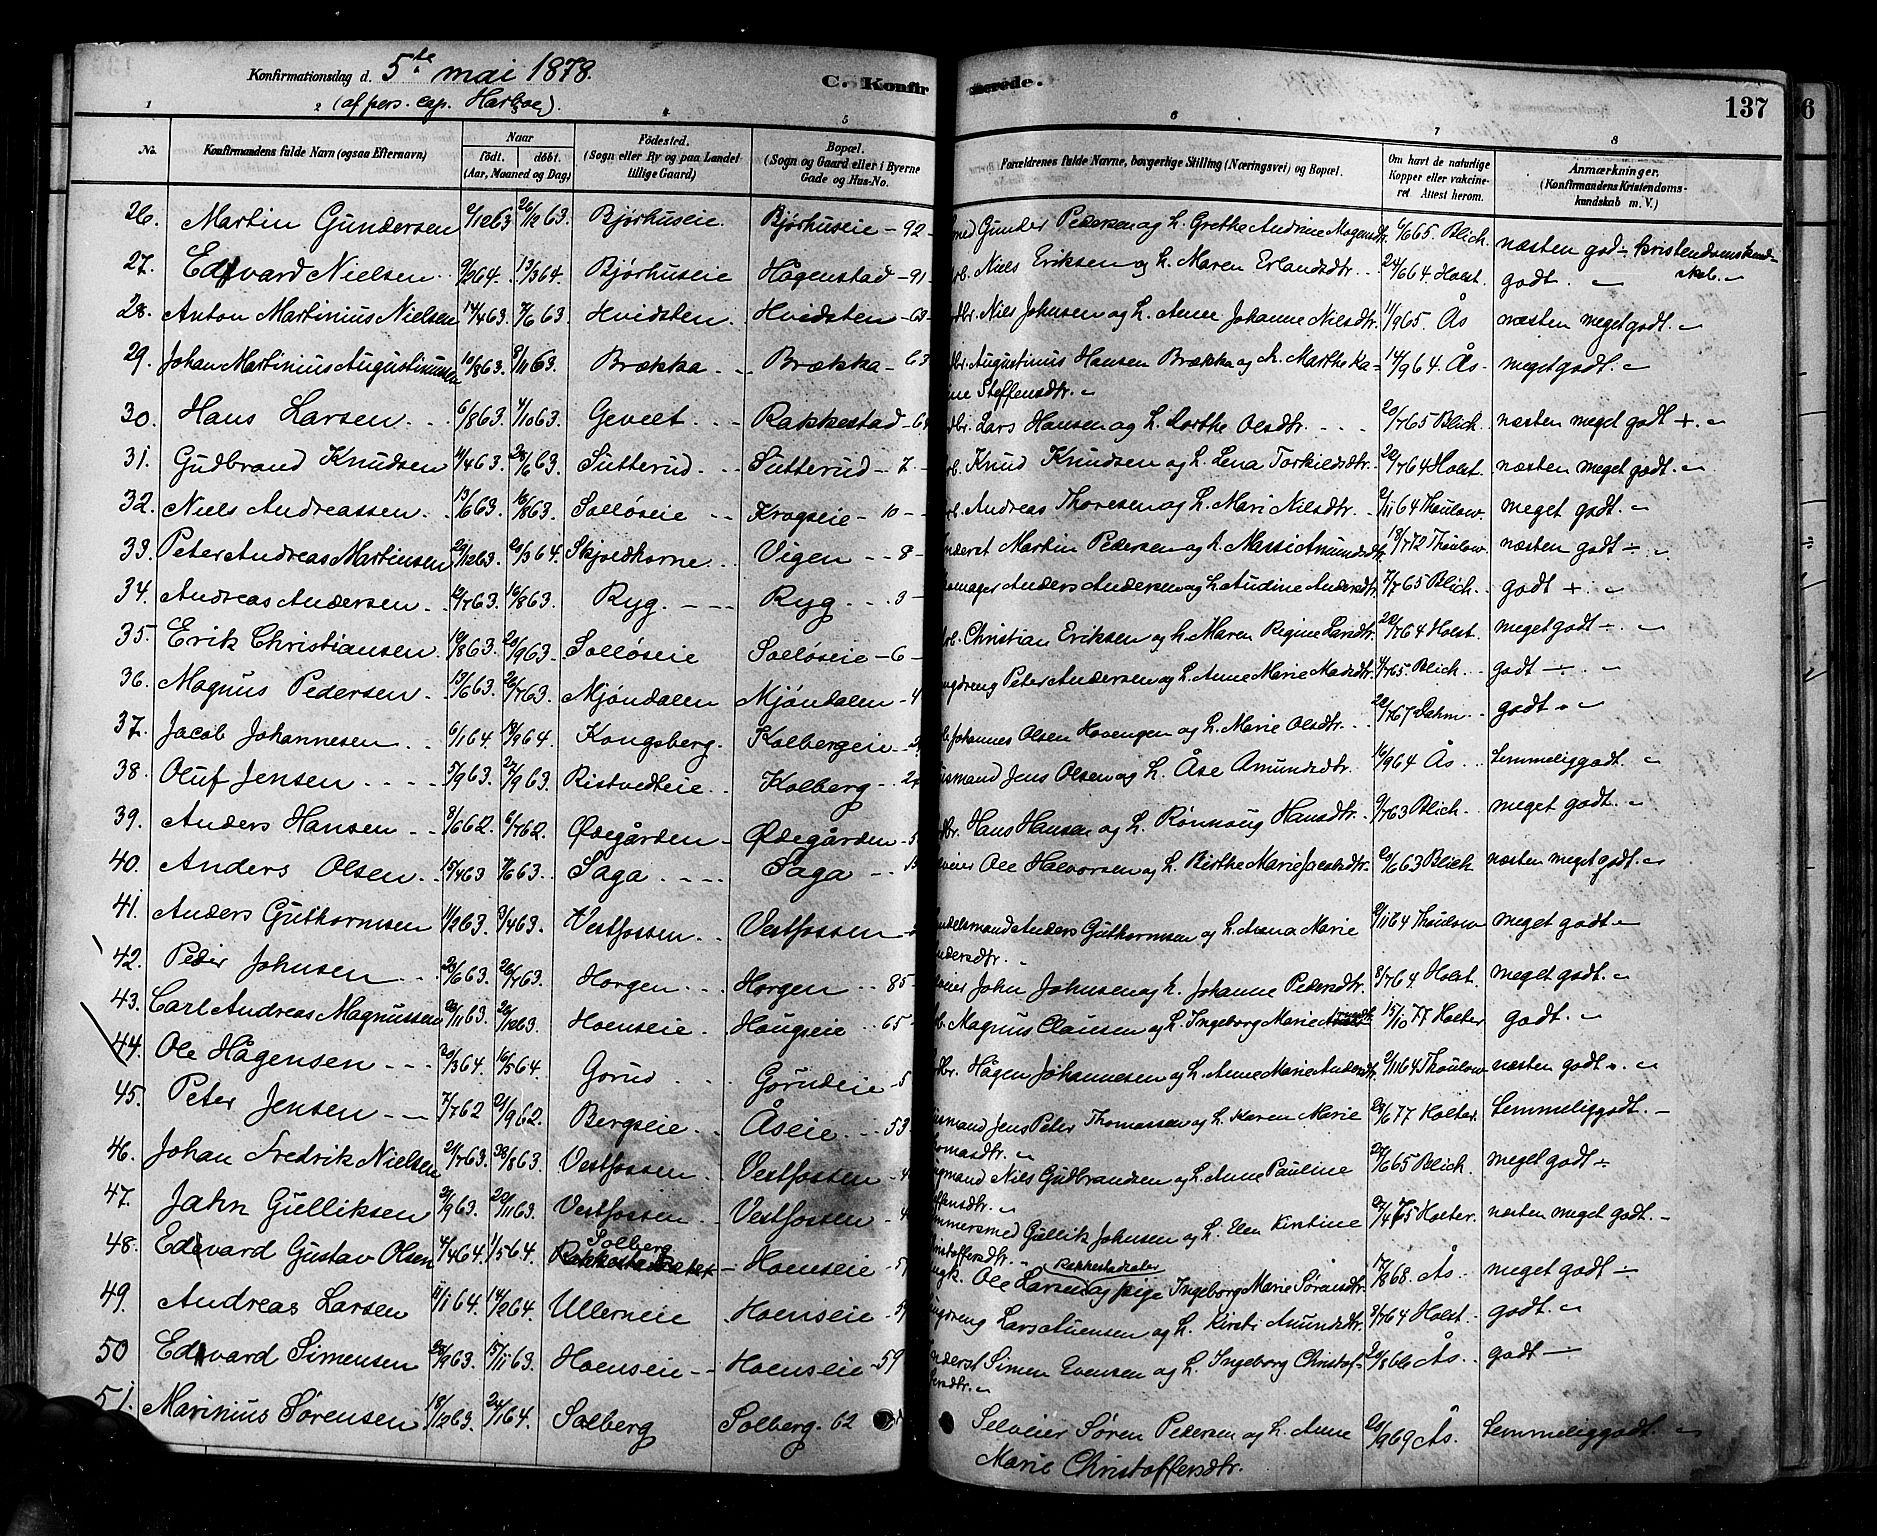 Konfirmationsdag d. 5te mai 1878. C. Konfirmerede. 137
(af pers. cap. Harboe).
1 2 4 5 6 7 8
No. Konfirmandens fulde Navn (ogsaa Efternavn) Naar født. døbt. (Aar, Maaned og Dag) Fødested. (Sogn eller By og paa Landet tillige Gaard) Bopæl. (Sogn og Gaard eller i Byerne Gade og Hus-No. Forældrenes fulde Navne, borgerlige Stilling (Næringsvei) og Bopæl. Om havt de naturlige Kopper eller vakcineret. Attest herom. Anmærkninger. (Konfirmandens Kristendomskundskab m. V.)
26. Martin Gundersen 26/12 63 Bjørhuseie Bjørhuseie - 92 - Gunder Pedersen og h. Grethe Andrine Mogensdtr. 6/6 65. Blich. næsten god ÷ kristendomskundskab.
27. Edvard Nielsen 9/2 64. 13/3 64. Bjørhuseie Hågenstad - 91 - Niels Eriksen og h. Maren Erlandsdtr. 24/6 64 Holst. godt.
28. Anton Martinius Nielsen 14/4 63. 7/6 63. Hvidsten Hvidsten - 63 Niels Johnsen og h. Anne Johanne Nilsdtr. 11/9 65. Ås næsten meget godt.
29. Johan Martinius Augustinussen 10/8 63. 8/11 63. Brækka Brækka - 63 Augustinus Hansen Brækka og h. Marthe Ka-
ine Steffensdtr. 14/9 64. Ås meget godt.
30. Hans Larsen 6/8 63. 4/10 63. Geveet Rakkestad - 64 Lars Hansen og h. Dorthe Olsdtr. 20/7 65 Blich. næsten meget godt +.
31. Gudbrand Knudsen 11/4 63. 28/6 63. Sutterud Sutterud - 7 - Knud Knudsen og h. Lena Torkildsdtr. 20/7 64 Holst. næsten meget godt.
32. Niels Andreassen 13/6 63. 16/8 63. Solløseie Krogseie - 10 - Andreas Thoresen og h. Mari Nilsdtr. 2/11 64 Thaulow. meget godt.
33. Peter Andreas Martinsen 29/12 63. 20/3 64. Skjoldhorne Vigen - 8 - Martin Pedersen og h. Massi Amundsdtr. 18/7 72 Thaulow. næsten godt ÷
34. Andreas Andersen /7 63. 16/8 63. Ryg Ryg - 3 - Anders Andersen og h. Andine Andersdtr. 7/7 65 Blich. godt +
35. Erik Christiansen 19/8 63. 20/9 63. Solløseie Solløseie - 6 - Christian Eriksen og h. Maren Regine Larsdtr. 20/7 64 Holst. meget godt ÷
36. Magnus Pedersen 19/6 63. 26/7 63. Mjøndalen Mjøndalen - 4 Peter Andersen og h. Anne Marie Madsdtr. 4/7 65. Blich. godt ÷
37. Jacob Johannesen 6/1 64. 18/9 64. Kongsberg. Kolbergeie Johannes Olsen Hovengen og h. Marie Olsdtr. 22/7 67 Dahm. godt
38. Oluf Jensen 5/9 63. 27/9 63. Ristvedteie Kolberg Husmand Jens Olsen og h. Åse Amundsdtr. 16/9 64 Ås. temmelig godt.
39. Anders Hansen 8/6 62. 6/7 62. Ødegården Ødegården Hans Hansen og h. Rønnoug Hansdtr. 9/7 63 Blich. meget godt.
40. Anders Olsen 15/4 63 7/6 63. Saga Saga Ole Halvorsen og h. Birthe Marie Jacobsdtr. 20/6 63 Blich næsten meget godt.
41. Anders Guthormsen 11/2 63. 3/4 63. Vestfossen Vestfossen Anders Guthormsen og h. Anna Marie
ndersdtr. 2/11 64 Thaulow meget godt
42. Peder Johnsen 23/6 63. 26/7 63. Horgen Horgen - 85 - John Johnsen og h. Johanne Pedersdtr. 8/7 64 Holst meget godt.
43. Carl Andreas Magnussen 23/11 63. 26/12 63. Hoenseie Haugseie - 65 - Magnus Clausen og h. Ingeborg Marie 15/10 77 Holter godt.
44. Ole Hågensen 20/3 64. 16/5 64. Gorud Gorudeie - 5 Hågen Johannesen og h. Anne Marie Andersdtr. 2/11 64 Thaulow næsten godt
45. Peter Jensen 7/7 62 21/9 62. Bergseie Åseie - 53. Husmand Jens Peter Thomassen og h. Karen Marie
homasdtr. 28/6 77 Holter. temmelig godt.
46. Johan Fredrik Nielsen 21/7 63. 30/8 63. Vestfossen Vestfossen - 4 Niels Gudbrandsen og h. Anne Pauline
effensdtr. 27/6 65 Blich. meget godt ÷
47. Jahn Gulliksen 21/9 63. 22/11 63. Vestfossen Vestfossen - 4 Gullik Johnsen og h. Elen Kirstine
hristoffersdtr. 27/4 75 Holter. næsten meget godt.
48. Edevard Gustav Olsen 4/4 64. 1/5 64. Solberg Hoenseie Ole Larsen Rakkestadeier og pige Ingeborg Marie Sørensdtr. 17/8 68. Ås. meget godt
49. Andreas Larsen 11/1 64. 14/2 64. Ullerneie Hoenseie Lars Auensen og h. Kirsti Amundsdtr. 8/7 64 Holst. godt.
50 Edvard Simensen 28/9 63. 15/11 63. Hoenseie Hoenseie - 59 Simen Evensen og h. Ingeborg Christof-
fersdtr. 20/8 66 Ås. godt
51. Marinius Sørensen 18/12 63. 24/1 64. Solberg Solberg. 62 Selveier Søren Pedersen og h. Anne
Marie Christoffersdtr. 20/9 69 Ås. temmelig godt.
6